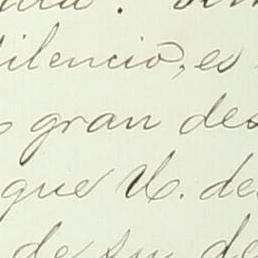 silencio, es
gran des
que V. de
de su de